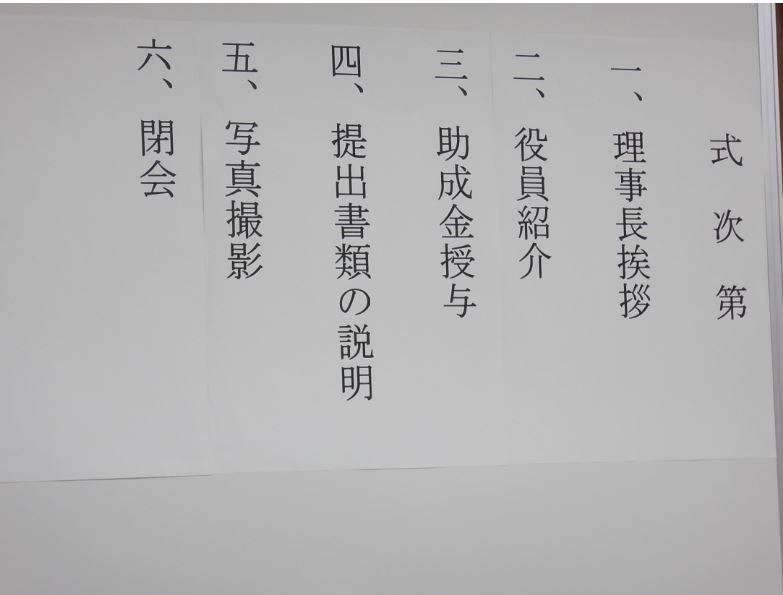 式次第
一、理事長挨拶
二、役員紹介
三、助成金授与
四、提出書類の説明
五、写真撮影
六、閉会